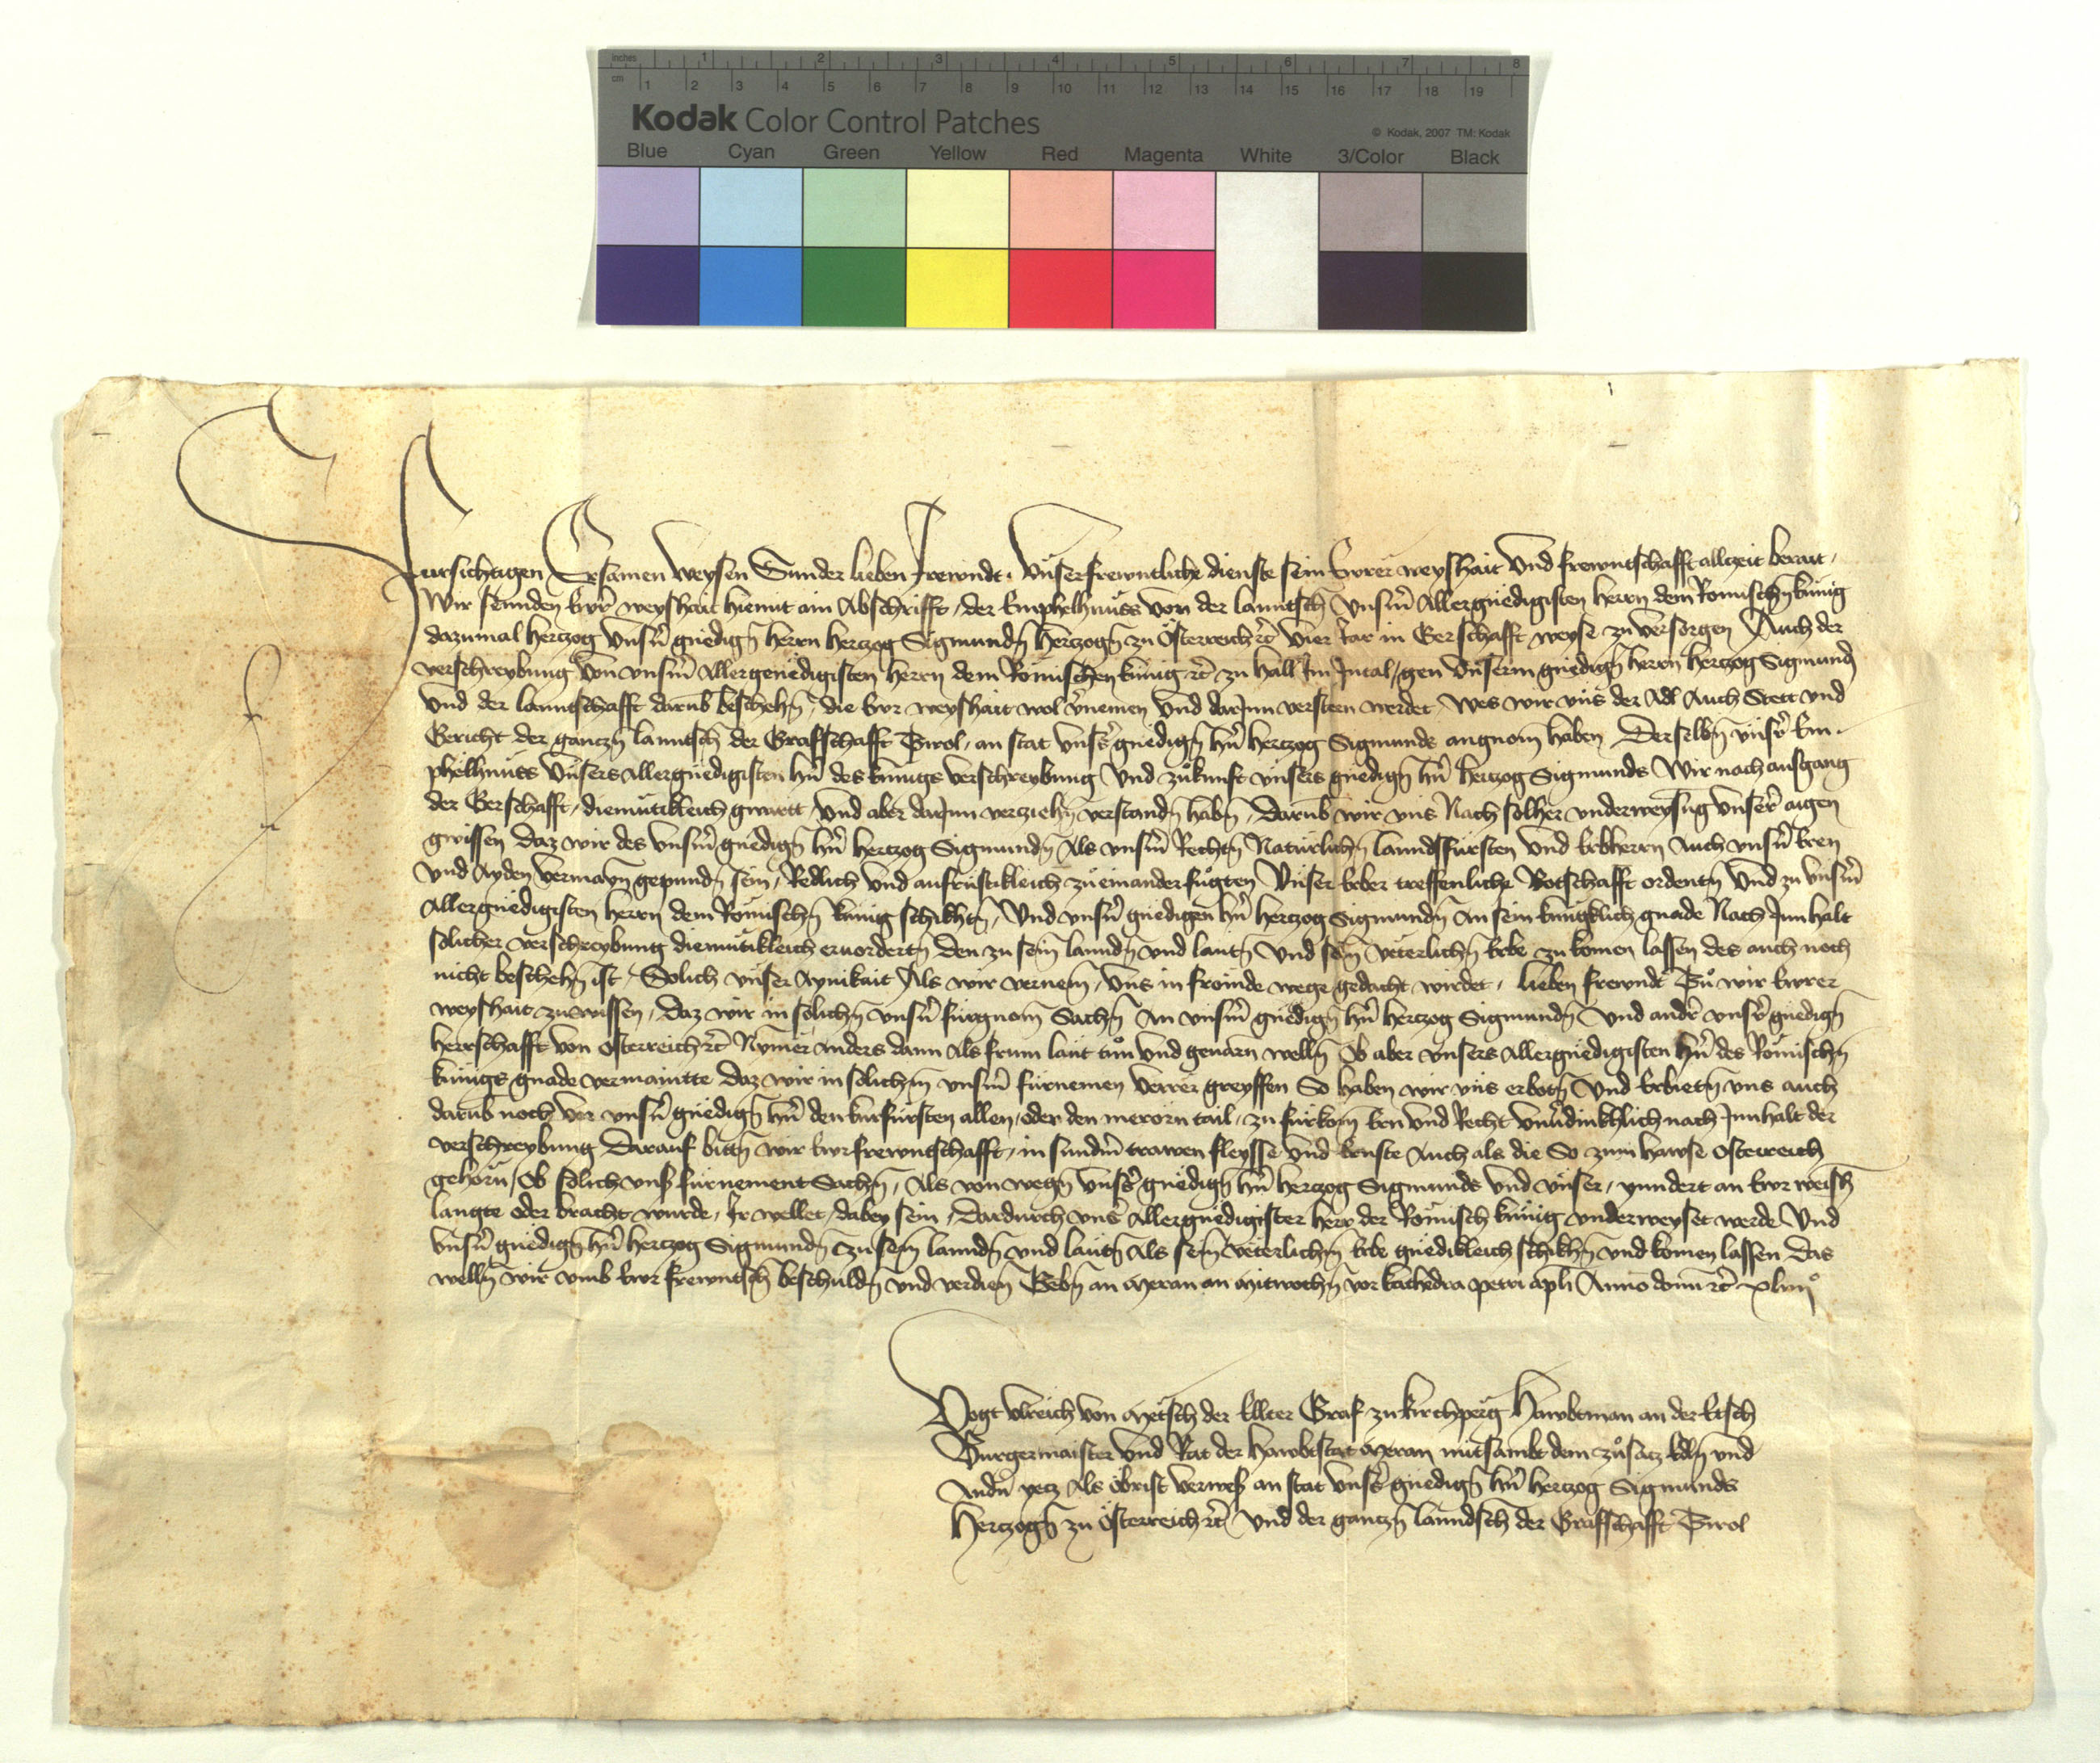 inches 1 2 3 4 5 6 7 8
cm 1 2 3 4 5 6 7 8 9 10 11 12 13 14 15 16 17 18 19
Kodak Color Control Patches
© Kodak, 2007 TM: Kodak
Blue Cyan Green Yellow Red Magenta White 3/Color Black
Fursichtigen Ersamen Weysen Sunder lieben Frewndt. Unser frewntliche dienste sein Ewrer weyshait und frewntschafft allzeit berait.
Wir sennden ewr weyshait hiemit ain Abschrifft, der Emphelhnuss von der lanntsch unserm Allergnedigisten herrn dem Romischen kunig
dazumal hertzog unserm gnedign herrn hertzog Sigmundn hertzogn zu Österreich etc vier Jar in Gerschafft weyse zu versorgen Auch der
verschreybung von unserm Allergenedigisten herrn dem Römischen kunig etc zu Hall Im Intal, gen unserm gnedign herrn hertzog Sigmund
und der lanntschafft darumb beschehn, die ewr weyshait wol vernemen und darInn versteen werdet, wes wir uns der Adl Auch Stett und
Gericht der gantzn lanntsch der Grafschafft Tirol, an stat unsers gnedign hern hertzog Sigmunds angnom haben Derselbn unser Em-
phelhnuss unsers Allergnedigisten hern des kunigs verschreybung und zukunft unsers gnedign hern hertzog Sigmunds Wir nach ausgang
der Gerschafft, diemutikleich gwartt, und aber darInn verziehn verstandn habn, Darumb wir uns Nach solher underweysung unser aigen
gwissen daz wir des unserm gnedign hern hertzog Sigmundn Als unserm Rechtn Naturlichn lanndsfürsten und Erbherrn Auch unsern Eren
und Ayden vermayn gepundn sein, Redlich und aufrustikleich zu einander fugten Unser Erber treffenliche Botschafft ordentn und zu unserm
Allergnedigisten herrn dem Römischn kunig schikhtn, Und unsern gnedigen hern hertzog Sigmundn An sein kunigklich gnade Nach Innhalt
solicher verschreybung diemutikleich eruordertn den zu sein lanndn und lautn und sein veterlichn Erbe zu komen lassen des auch noch
nicht beschehn ist, Solich unser Aynikait Als wir vernem, uns in fromde wege gedacht wirdet, lieben frewndt Tu wir Ewrer
weyshait zuwissen, Daz wir in solichn unsern fürgnom Sachn An unserm gnedign hern hertzog Sigmundn und ander unser gnedign
herrschafft von Österreich etc Nymer anders dann als frum laut tun und geuarn welln Ob aber unsers Allergnedigisten hern des Römischn
kunigs gnade vermaintte daz wir in solichm unserm fürnemen verrer greyffen So haben wir uns erbotn und Erbietn uns auch
darumb noch vor unsern gnedign hern den kurfürsten allen, oder den merorn tail, zu fürkom Ern und Recht unuerdinkhlich nach Innhalt der
verschreybung Darauf bittn wir ewr frewntschafft, in sunderm trawen fleysse und Ernste Auch als die So zum hawse Österreich
gehorn, Ob solich unser fürnement Sachn, Als von wegn unsers gnedign hern hertzog Sigmunds und unser, yundert an ewr weish
langte oder bracht wurde, Ir wellet, dabey sein, Dardurch unser Allergnedigister herr der Römisch kunig underweyset werde Und
unsern gnedign hern hertzog Sigmundn zu sein lanndn und lautn Als sein veterlichm Erbe gnedikleich schikhn und komen lassen Das
welln wir umb ewr frewntsch beschuldn und verdien Gebn an Meran an Mitwochn vor kathedra petri apli Anno domi etc xliiii°
Vogt Ulreich von Metsch der Ellter Graf zu kirchperg Hawbtman an der Etsch
Burgermaister und Rat der Hawbtstat Meran mitsambt dem zusatz Edln und
Andern yetz Als Obrist verweser an stat unsers gnedign hern hertzog Sigmunds
Hertzogn zu Österreich etc Und der gantzn lanndsch der Grafschafft Tirol